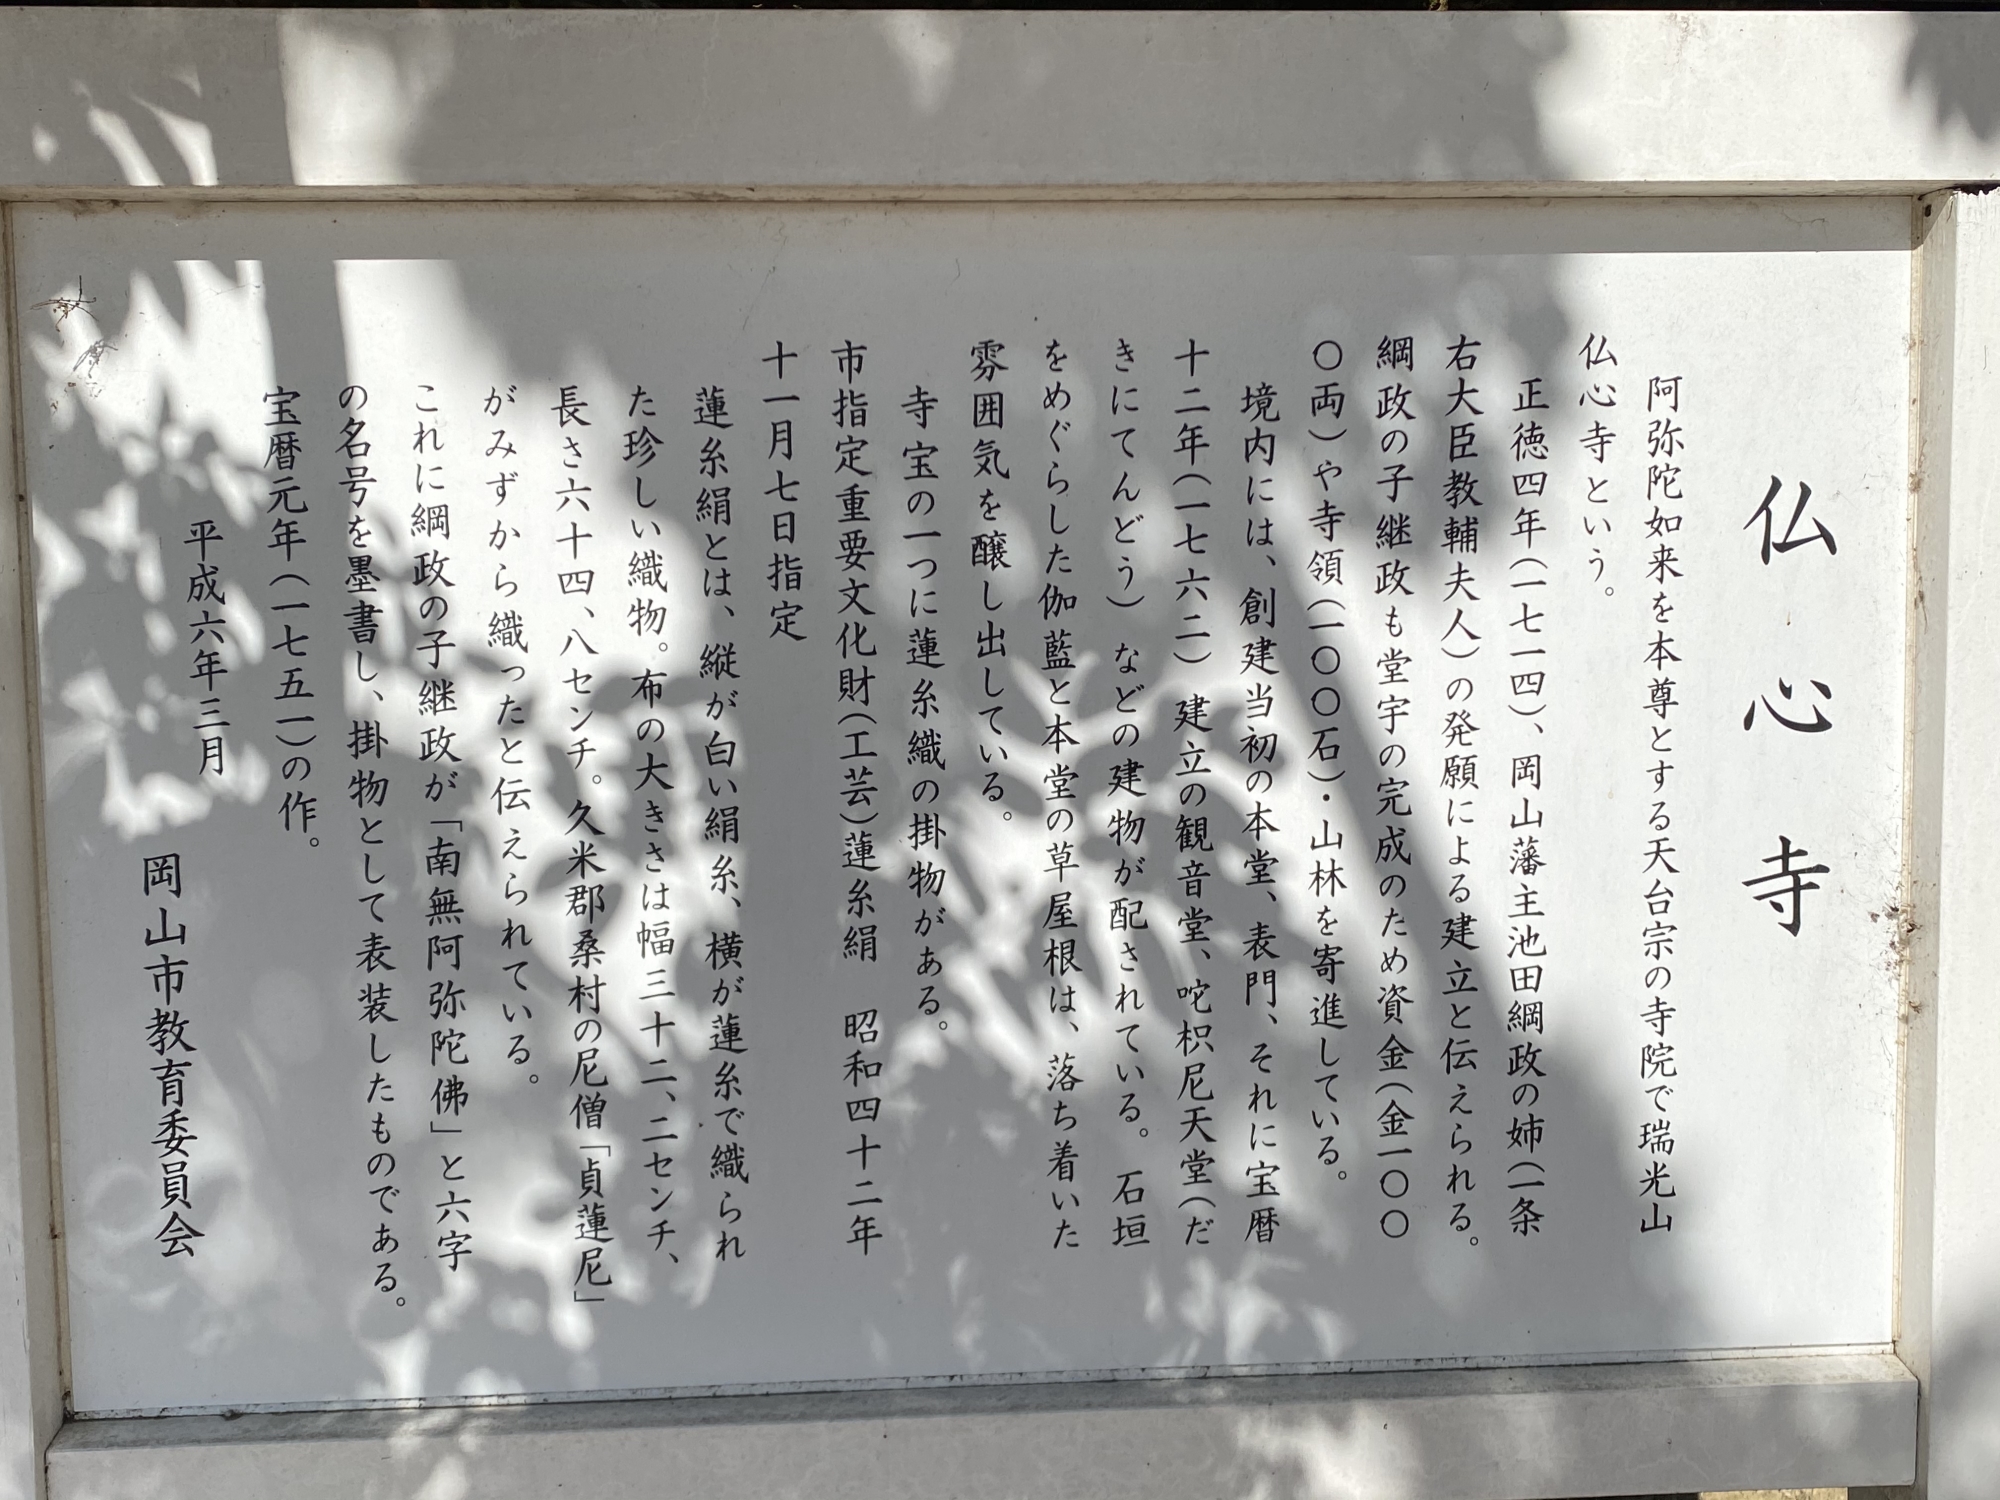 仏心寺
阿弥陀如来を本尊とする天台宗の寺院で瑞光山
仏心寺という。
正徳四年(一七一四)、岡山藩主池田綱政の姉(一条
右大臣教輔夫人)の発願による建立と伝えられる。
綱政の子継政も堂宇の完成のため資金(金一〇〇
〇両)や寺領(一〇〇〇石)・山林を寄進している。
境内には、創建当初の本堂、表門、それに宝暦
十二年(一七六二)建立の観音堂、咜枳尼天堂(だ
きにてんどう)などの建物が配されている。石垣
をめぐらした伽藍と本堂の草屋根は、落ち着いた
雰囲気を醸し出している。
寺宝の一つに蓮糸織の掛物がある。
市指定重要文化財(工芸)蓮糸絹　昭和四十二年
十一月七日指定
蓮糸絹とは、縦が白い絹糸、横が蓮糸で織られ
た珍しい織物。布の大きさは幅三十二、二センチ、
長さ六十四、八センチ。久米郡桑村の尼僧「貞蓮尼」
がみずから織ったと伝えられている。
これに綱政の子継政が「南無阿弥陀佛」と六字
の名号を墨書し、掛物として表装したものである。
宝暦元年(一七五一)の作。
平成六年三月
岡山市教育委員会